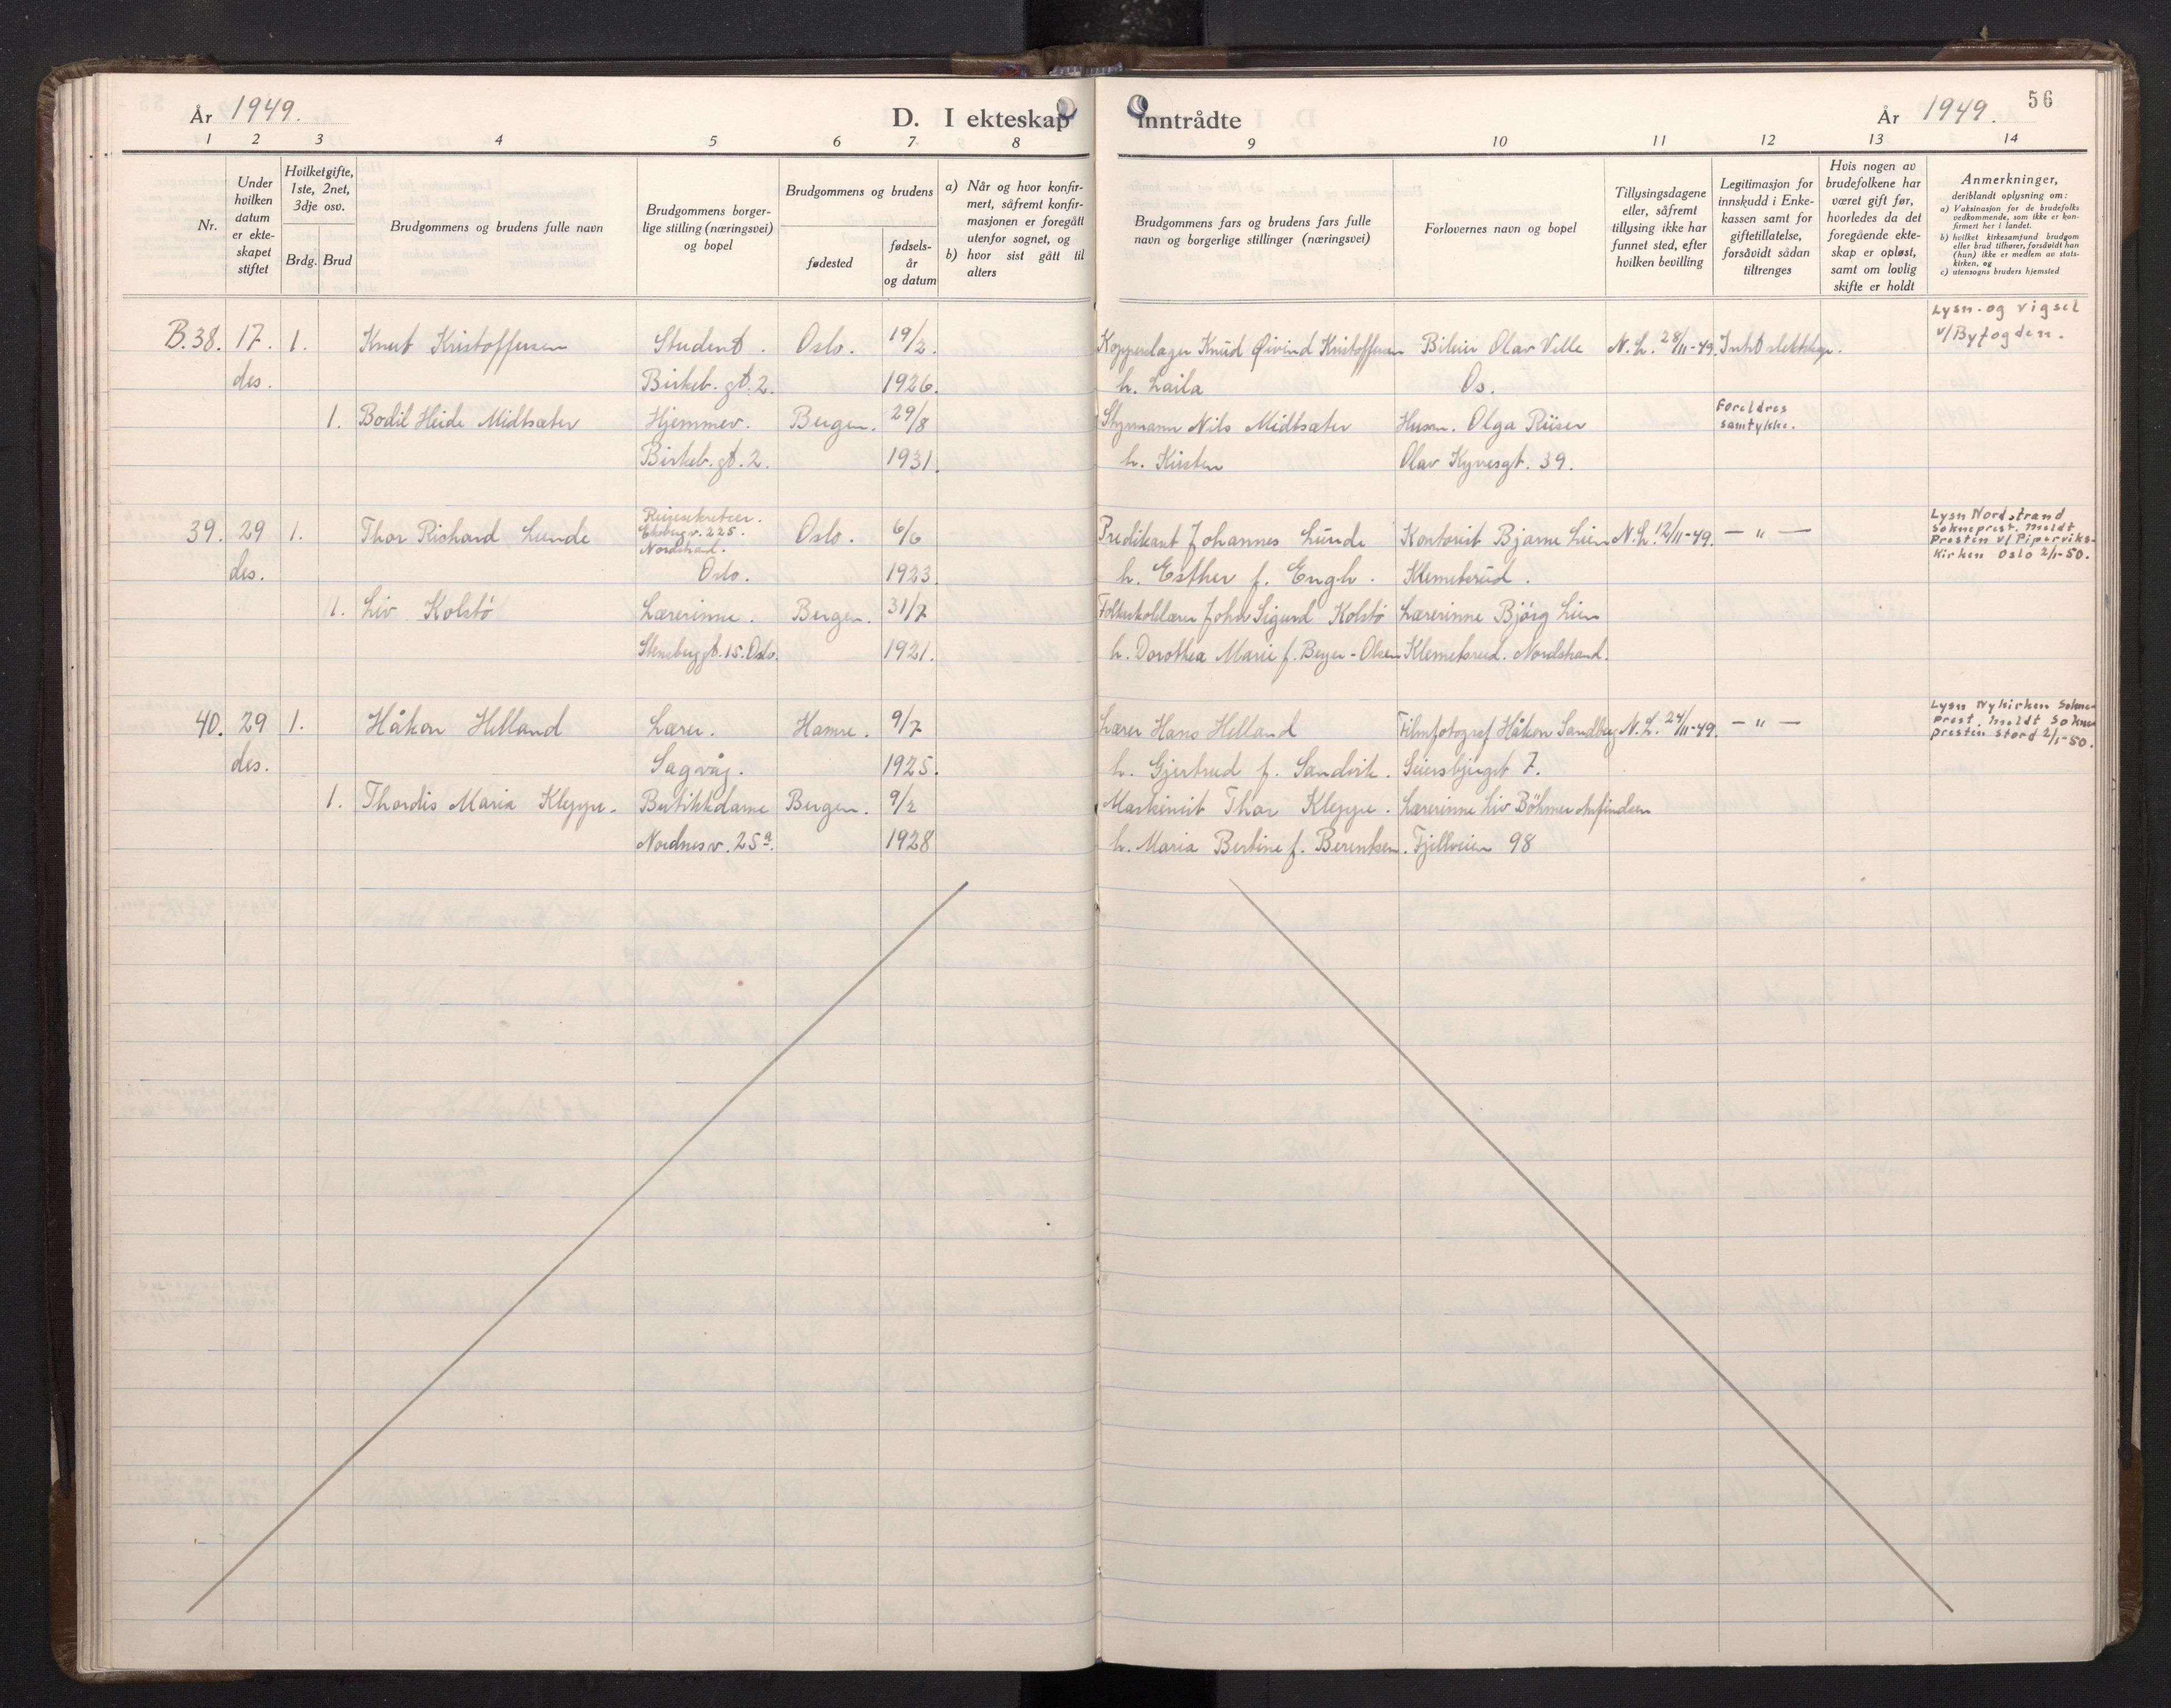 År 1949.
D. I ekteskap inntrådte
År 1949.
56
1 2 3 4 5 6 7. 8 9 10 11 12 13 14
Nr.
Under hvilken datum er ekteskapet stiftet
Hvilket gifte, 1ste, 2net, 3dje osv.
Brdg. Brud
Brudgommens og brudens fulle navn
Brudgommens borgerlige stilling (næringsvei) og bopel
Brudgommens og brudens
fødested
fødselsår og datum
a) Når og hvor konfirmert, såfremt konfirmasjonen er foregått utenfor sognet, og
b) hvor sist gått til alters
Brudgommens fars og brudens fars fulle navn og borgerlige stillinger (næringsvei)
Forlovernes navn og bopel
Tillysingsdagene eller, såfremt tillysing ikke har funnet sted, efter hvilken bevilling
Legitimasjon for innskudd i Enkekassen samt for giftetillatelse, forsåvidt sådan tiltrenges
Hvis nogen av brudefolkene har været gift før, hvorledes da det foregående ekteskap er opløst, samt om lovlig skifte er holdt
Anmerkninger,
deriblandt oplysning om:
a) Vaksinasjon for de brudefolks vedkommende, som ikke er konfirmert her i landet.
b) hvilket kirkesamfund brudgom eller brud tilhører, forsåvidt han (hun) ikke er medlem av statskirken, og
c) utensogns bruders hjemsted
B.38. 17. 1. Knut Kristoffersen Student. Oslo. 19/2. Kopperslager Knud Øivind Kristoffersen Bileier Olav Ville N.L. 28/11-49. Intet slektskap. Lysn. og vigsel
v/Byfogden.
des. Birkeb. gt. 2. 1926. h. Laila Os.
1. Bodil Heide Midtsæter Hjemmev. Bergen. 29/8 Styrmann Nils Midtsæter Husm. Olga Riiser Foreldres
samtykke.
Birkeb. gt. 2. 1931. h. Kirsten Olav Kyrresgt. 39.
39. 29 1. Thor Richard Lunde Reisesekretær.
Ekebergv. 225.
Nordstrand. Oslo. 6/6 Predikant Johannes Lunde Kontorist Bjarne Lien N.L. 12/11-49. — " — Lysn Nordstrand
Sokneprest. meldt
Presten v/ Piperviks-
Kirken Oslo 2/1-50.
des. Oslo. 1923. h. Esther f. Engh. Klemetsrud.
1. Liv Kolstö Lærerinne. Bergen. 31/7 Folkeskolelærer John Sigurd Kolstö Lærerinne Bjórg Lien
Stensberggt. 15. Oslo. 1921. h. Dorothea Marie f. Beyer-Olsen Klemetsrud. Nordstrand.
40. 29 1. Håkon Helland Lærer. Hamre. 9/7 Lærer Hans Helland Filmfotograf Håkon Sandberg N.L. 24/11-49. — " — Lysn Nykirken Sokne-
prest. meldt Sokne
presten Stord 2/1-50.
des. Sagvåg. 1925. h. Gjertrud f. Sandvik. Seiersbjerget 7.
1. Thordis Maria Kleppe. Butikkdame Bergen. 9/2 Maskinist Thor Kleppe. Lærerinne Liv Böhmer
Nordnesv. 25a. 1928 h. Maria Bertine f. Berentsen. Fjellveien 98